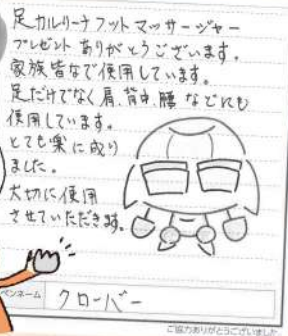 足カルリーナ フット マッサージャー
プレゼント ありがとうございます。
家族皆なで使用しています。
足だけでなく肩、背中、腰 などにも
使用しています。
とても楽に成り
ました。
大切に使用
させていただきます。
ペンネーム クローバー
ご協力ありがとうございました